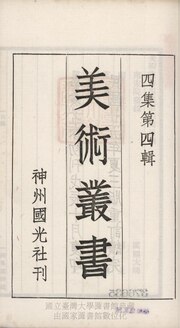 四集第四輯
美術叢書
神州國光社刊
國立臺灣大學圖書館典藏
由國家圖書館數位化